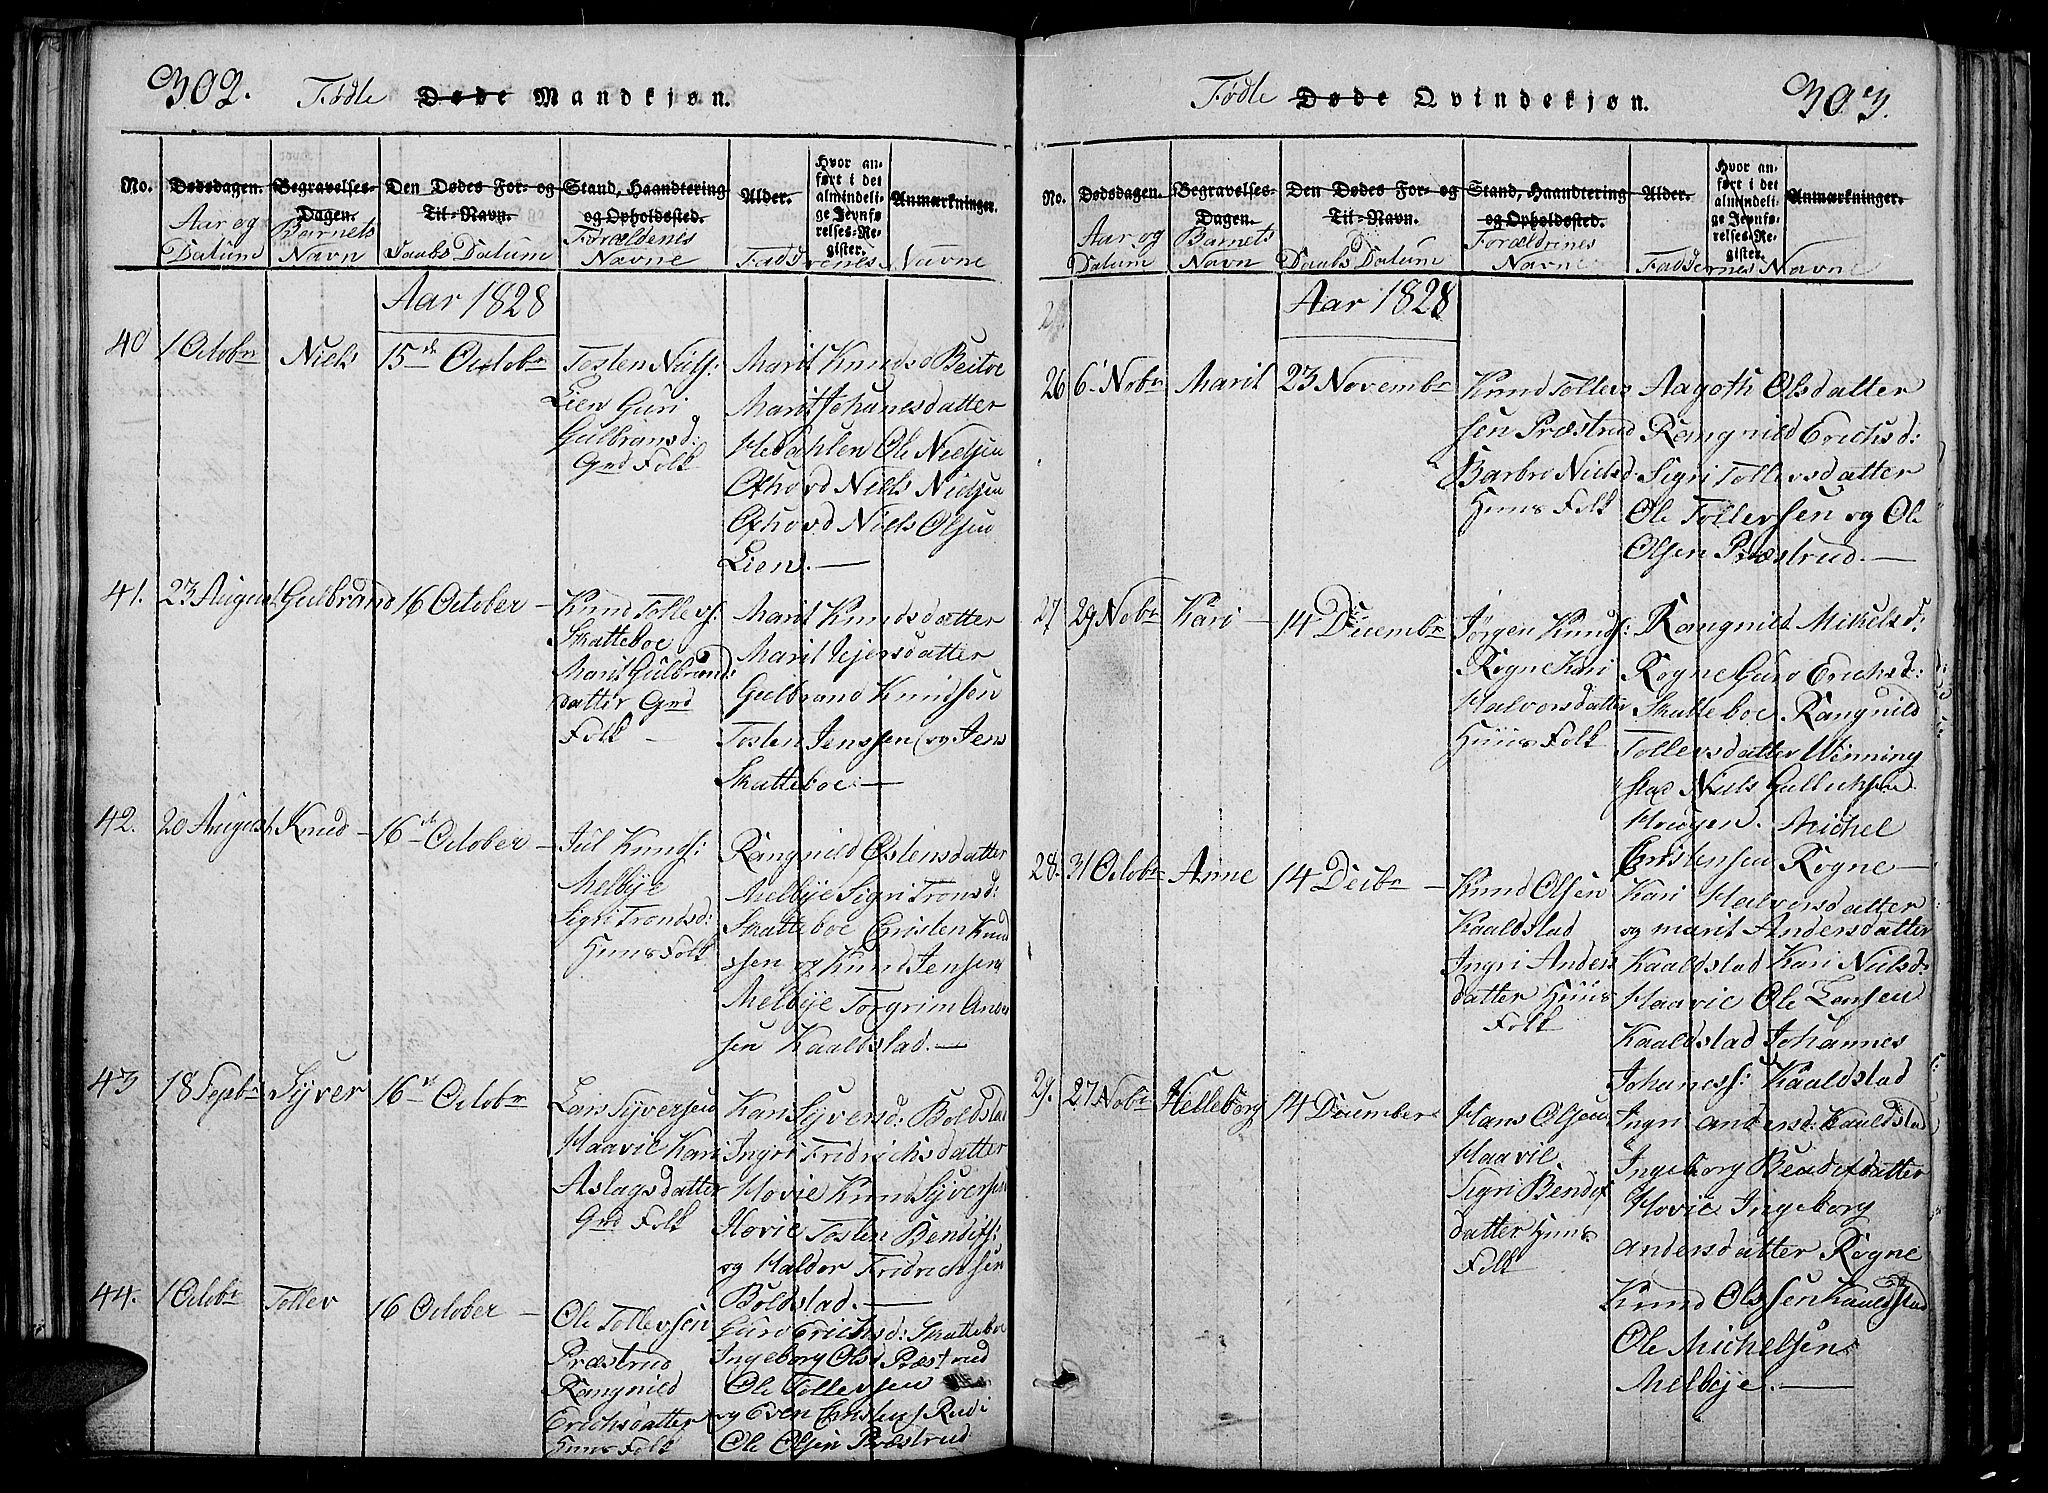 302. Fødte Døde Mandkjøn.
No.
Dødsdagen.
Aar og
Datum
Begravelses-
Dagen.
Barnets
Navn
Den Dødes For- og
Til-Navn.
Daabs Datum
Stand, Haandtering
og Opholdssted.
Forældenes
Navne
Alder.
Hvor an-
ført i det
almindeli-
ge Jevnfø-
relses-Re-
gister.
Anmærkninger.
Faddrenes Navne
Aar 1828
40 1 Octobr Niels 15de Octobr
Tosten Niels:
Lien Guri
Gulbransd:
Grd Folk
Marit Knudsd Beitoe
Marit Johanesdatter
Hedahlen Ole Nielsen
Niels Nielsen
Niels Olsen
Lien. —
41. 23 August Gulbrand 16 October —
Knud Tollevs:
Skatteboe
Marit Gulbrand:
datter Grd
Folk —
Marit Knudsdatter
Marit Ejersdatter
Gulbrand Knudsen
Tosten Jenssen og Jens
Skatteboe. —
42. 20 August Knud — 16de October —
Jul Knuds:
Melbye
Sigri Trondsd:
Huus Folk
Rangnild Østensdatter
Melbye Sigri Tronsd:
Skatteboe Cristen Knud
ssen og Knud Jensen
Melbye Torgrim Ander
sen Kaaldstad. —
43 18 Sepbr Syver 16de Octobr
Lars Syversen
Haavie Kari
Aslagsdatter
Grd Folk
Kari Syversd: Boldstad
Ingri Fridrichsdatter
Hovie Knud Syversen
Hovie Tosten Bendixs:
og Haldor Fridrichsen
Boldstad. —
44. 1 Octobr Tollev 16 October —
Ole Tollevsen
Præstrud
Rangnild
Erichsdatter
Huus Folk
Guro Erichsd: Skatteboe
Ingeborg Olsd Præstrud
Ole Tollevsen
og Even Cristens Rudi
Ole Olsen Præstrud
Fødte Døde Qvindekjøn. 303.
No.
Dødsdagen.
Aar og
Datum
Begravelses-
Dagen.
Barnets
Navn
Den Dødes For- og
Til-Navn.
Daabs Datum
Stand, Haandtering
og Opholdssted.
Forældrines
Navne
Alder.
Hvor an-
ført i det
almindeli-
ge Jevnfø-
relses-Re-
gister.
Anmærkninger.
Faddernes Navne
Aar 1828
26 6 Nobr Marit 23 Novembr
Knud Tollev
sen Præstrud
Barbro Nielsd
Huus Folk
Aagoth Olsdatter
Rangnild Erichsd:
Sigri Tollevsdatter
Ole Tollevsen og Ole
Olsen Præstrud. —
27 29 Nobr Kari — 14 Decembr
Jørgen Knuds:
Rogne Kari
Halvorsdatter
Huus Folk
Rangnild Mikelsd:
Rogne Guro Erichsd:
Skatteboe Rangnild
Tollevsdatter Winning
stad Niels Gulliksen
Howgen. Michel
Cristensen Rogne —
28. 31 Octobr Anne 14 Decbr —
Knud Olsen
Kaaldstad
Ingri Anders
datter Huus
Folk
Kari Halversdatter
og marit Andersdatter
Kaaldstad Kari Nielsd:
Haavie Ole Larsen
Kaaldstad Johannes
Johaness: Kaaldstad
29. 27 Nobr Helleborg 14 December
Hans Olsen
Haavie
Sigri Bendix
datter Huus
Folk
Ingri andersd: Kauldstad
Ingeborg Bendixdatter
Hovie Ingeborg
andersdatter Rogne
Knud Olssen Kauldstad
Ole Michelsen
Melbye. —